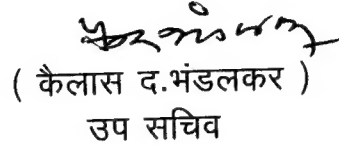 ( कैलास द.भंडलकर )
उप सचिव